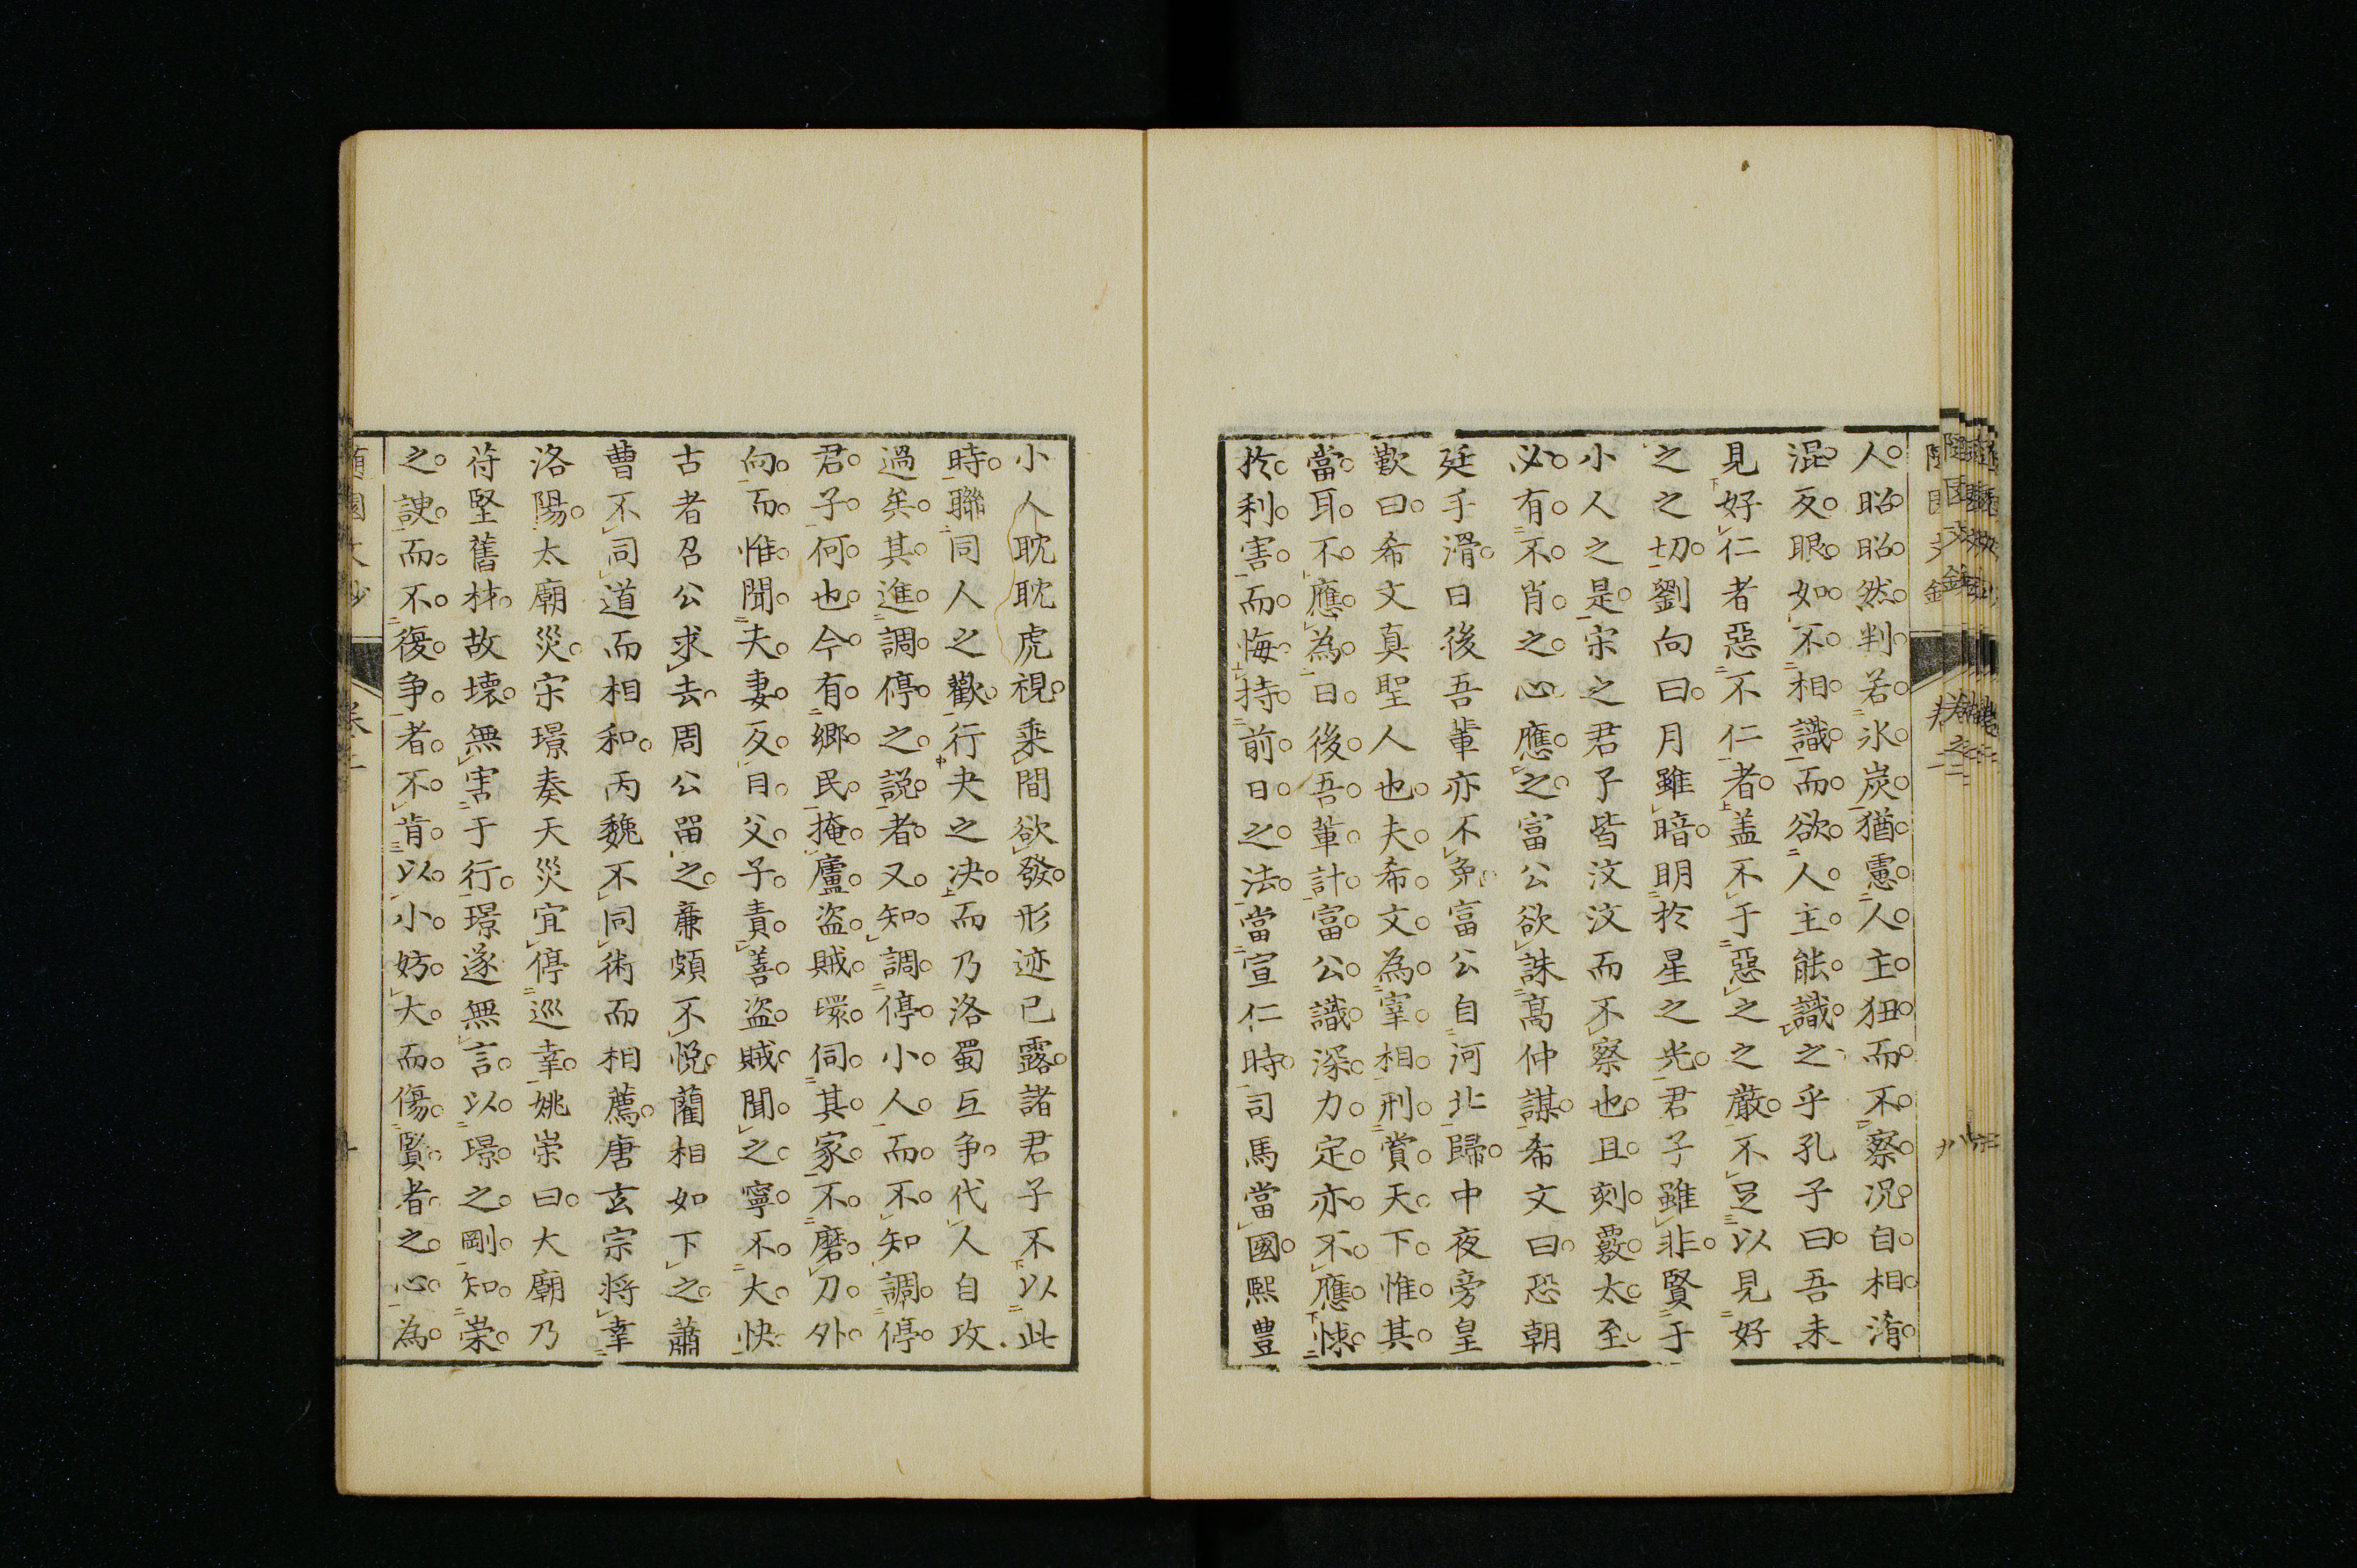 人昭昭然判若氷炭猶慮人主狃而不察况自相淆
混反眼如不相識而欲人主能識之乎孔子曰吾未
見好仁者惡不仁者盖不于惡之之嚴不足以見好
之之切劉向曰月雖暗明於星之光君子雖非賢于
小人之是宋之君子皆汶汶而不察也且刻覈太至
必有不肖之心應之富公欲誅高仲謀希文曰恐朝
廷手滑日後吾輩亦不免富公自河北歸中夜旁皇
歎曰希文真聖人也夫希文為宰相刑賞天下惟其
當耳不應為日後吾輩計富公識深力定亦不應悚
於利害而悔持前日之法當宣仁時司馬當國熙豊
小人耽耽虎視乗間欲發形迹已露諸君子不以此
時聯同人之歡行夬之决而乃洛蜀互争代人自攻
過矣其進調停之説者又知調停小人而不知調停
君子何也今有鄉民掩廬盗賊環伺其家不磨刀外
向而惟聞夫妻反目父子責善盗賊聞之寧不大快
古者召公求去周公留之亷頗不悦藺相如下之蕭
曹不同道而相和丙魏不同術而相薦唐玄宗将幸
洛陽太廟災宋璟奏天災宜停巡幸姚崇曰大廟乃
苻堅舊材故壊無害于行璟遂無言以璟之剛知崇
之諛而不復争者不肯以小妨大而傷賢者之心為